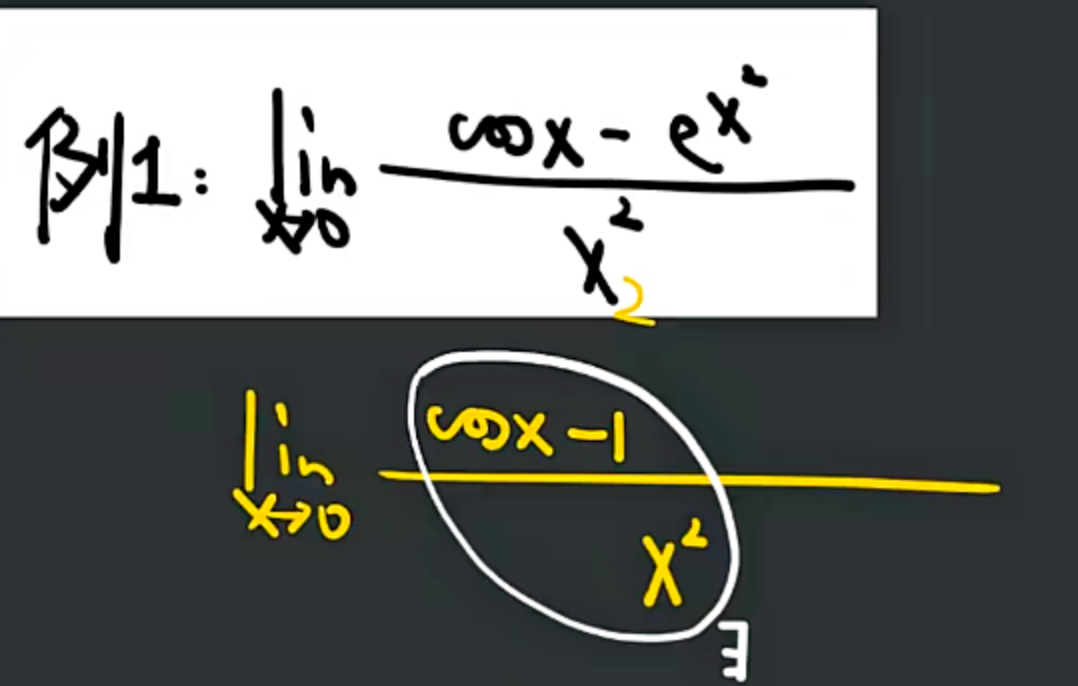 例1: lim x→0 (cosx - e^x²) / x²
2
lim x→0 (cosx - 1) / x²
∃